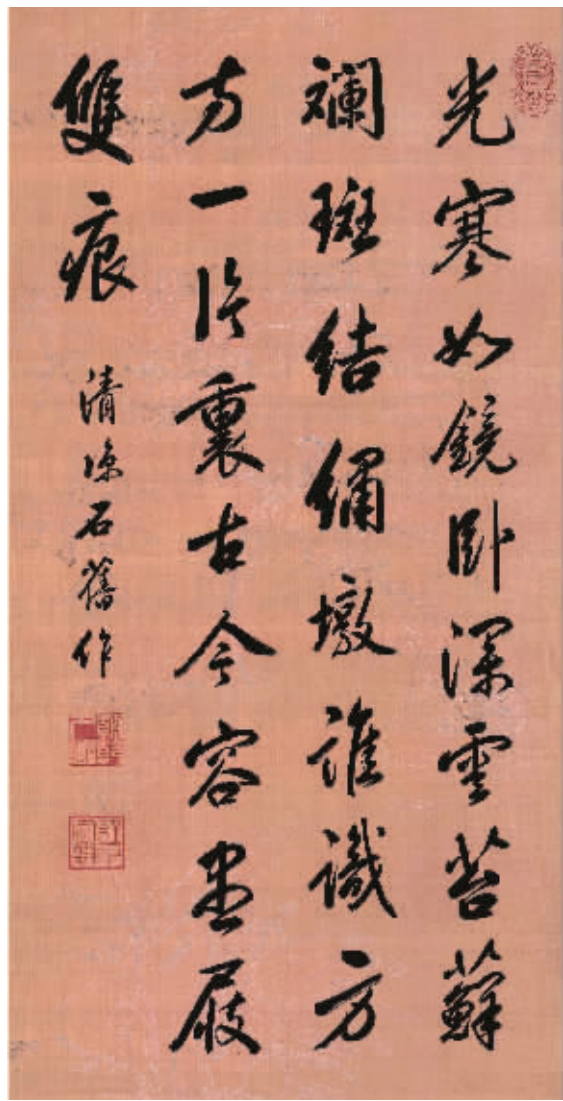 光寒如鏡臥深雲苔蘚
斕斑結繡墩誰識方
方一片裏古今容盡屐
雙痕
清涼石舊作